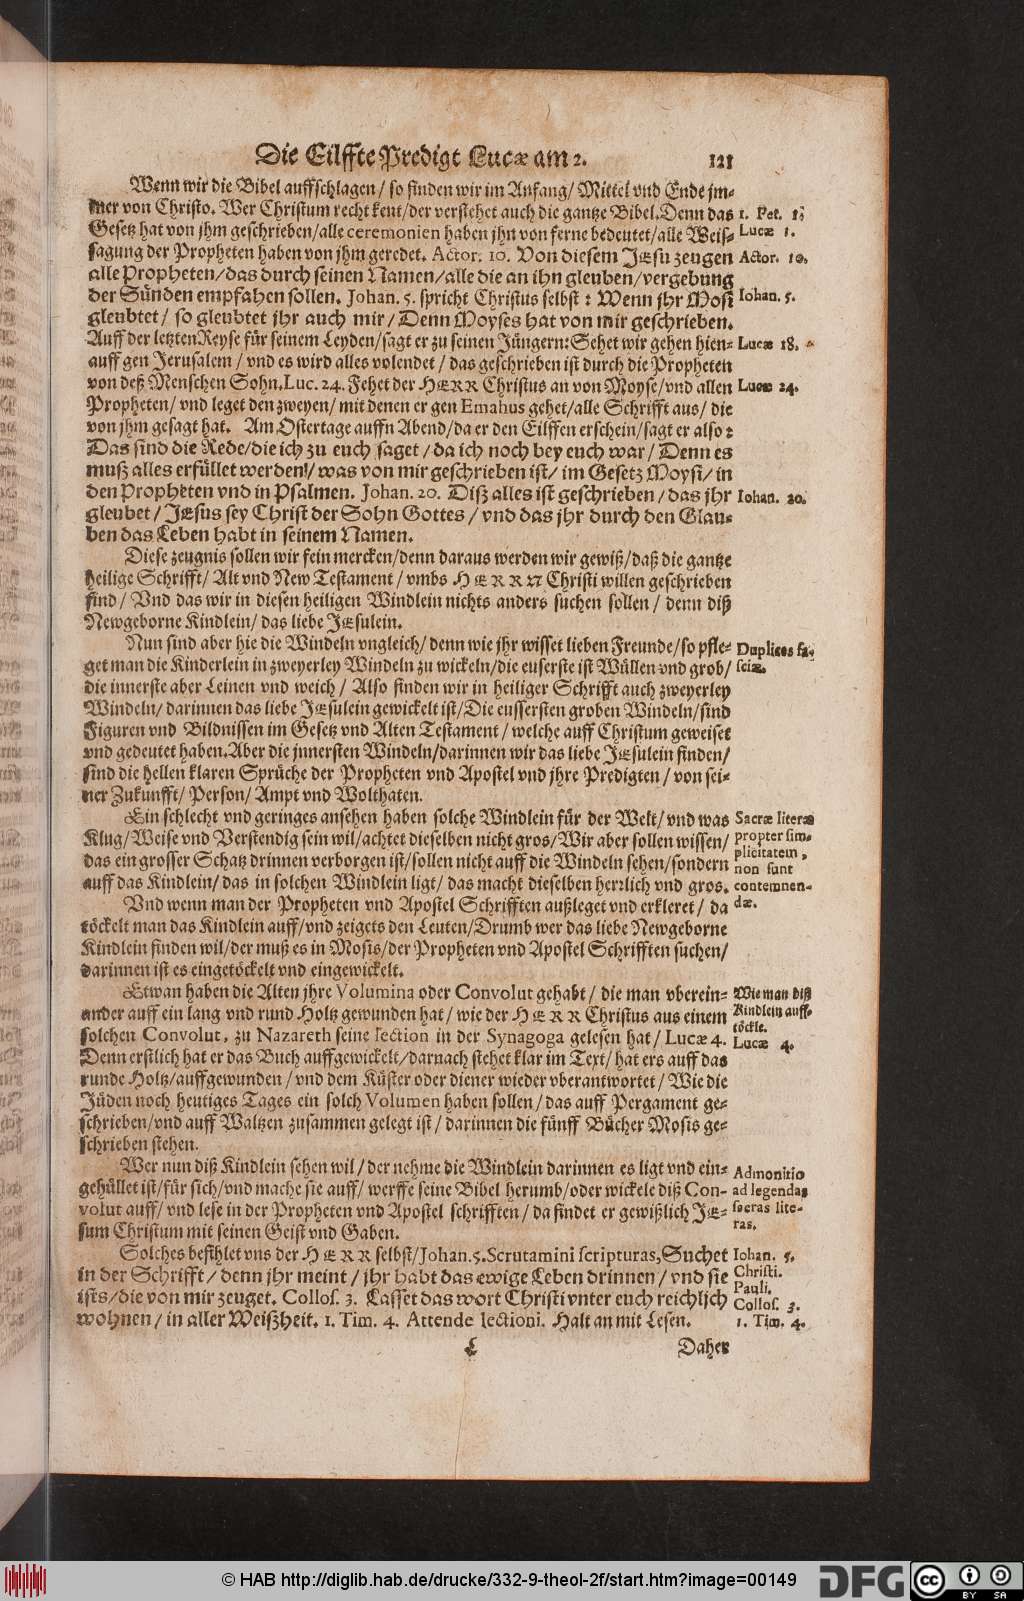 Die Eilffte Predigt Lucæ am 2. 121
Wenn wir die Bibel auffschlagen / so finden wir im Anfang / Mittel vnd Ende jm-
mer von Christo. Wer Christum recht kent / der verstehet auch die gantze Bibel. Denn das
Gesetz hat von jhm geschrieben / alle ceremonien haben jhn von ferne bedeutet / alle Weis-
sagung der Propheten haben von jhm geredet. Actor. 10. Von diesem JEsu zeugen
alle Propheten / das durch seinen Namen / alle die an ihn gleuben / vergebung
der Sünden empfahen sollen. Johan. 5. spricht Christus selbst : Wenn jhr Mosi
gleubtet / so gleubtet jhr auch mir / Denn Moyses hat von mir geschrieben.
Auff der letzten Reyse für seinem Leyden / sagt er zu seinen Jüngern: Sehet wir gehen hien-
auff gen Jerusalem / vnd es wird alles volendet / das geschrieben ist durch die Propheten
von deß Menschen Sohn. Luc. 24. Fehet der HERR Christus an von Moyse / vnd allen
Propheten / vnd leget den zweyen / mit denen er gen Emahus gehet / alle Schrifft aus / die
von jhm gesagt hat. Am Ostertage auffn Abend / da er den Eilffen erschein / sagt er also :
Das sind die Rede / die ich zu euch saget / da ich noch bey euch war / Denn es
muß alles erfüllet werden / was von mir geschrieben ist / im Gesetz Moysi / in
den Propheten vnd in Psalmen. Johan. 20. Diß alles ist geschrieben / das jhr
gleubet / JEsus sey Christ der Sohn Gottes / vnd das jhr durch den Glau-
ben das Leben habt in seinem Namen.
Diese zeugnis sollen wir fein mercken / denn daraus werden wir gewiß / daß die gantze
heilige Schrifft / Alt vnd New Testament / vmbs HERRN Christi willen geschrieben
sind / Vnd das wir in diesen heiligen Windlein nichts anders suchen sollen / denn diß
Newgeborne Kindlein / das liebe JEsulein.
Nun sind aber hie die Windeln vngleich / denn wie jhr wisset lieben Freunde / so pfle-
get man die Kinderlein in zweyerley Windeln zu wickeln / die euserste ist Wüllen vnd grob /
die innerste aber Leinen vnd weich / Also finden wir in heiliger Schrifft auch zweyerley
Windeln / darinnen das liebe JEsulein gewickelt ist / Die eussersten groben Windeln / sind
Figuren vnd Bildnissen im Gesetz vnd Alten Testament / welche auff Christum geweiset
vnd gedeutet haben. Aber die jnnersten Windeln / darinnen wir das liebe JEsulein finden /
sind die hellen klaren Sprüche der Propheten vnd Apostel vnd jhre Predigten / von sei-
ner Zukunfft / Person / Ampt vnd Wolthaten.
Ein schlecht vnd geringes ansehen haben solche Windlein für der Welt / vnd was
Klug / Weise vnd Verstendig sein wil / achtet dieselben nicht gros / Wir aber sollen wissen /
das ein grosser Schatz drinnen verborgen ist / sollen nicht auff die Windeln sehen / sondern
auff das Kindlein / das in solchen Windlein ligt / das macht dieselben herrlich vnd gros.
Vnd wenn man der Propheten vnd Apostel Schrifften außleget vnd erkleret / da
töckelt man das Kindlein auff / vnd zeigets den Leuten / Drumb wer das liebe Newgeborne
Kindlein finden wil / der muß es in Mosis / der Propheten vnd Apostel Schrifften suchen /
darinnen ist es eingetöckelt vnd eingewickelt.
Etwan haben die Alten jhre Volumina oder Convolut gehabt / die man vberein-
ander auff ein lang vnd rund Holtz gewunden hat / wie der HERR Christus aus einem
solchen Convolut, zu Nazareth seine lection in der Synagoga gelesen hat / Lucæ 4.
Denn erstlich hat er das Buch auffgewickelt / darnach stehet klar im Text / hat ers auff das
runde Holtz / auffgewunden / vnd dem Küster oder diener wieder vberantwortet / Wie die
Jüden noch heutiges Tages ein solch Volumen haben sollen / das auff Pergament ge-
schrieben / vnd auff Waltzen zusammen gelegt ist / darinnen die fünff Bücher Mosis ge-
schrieben stehen.
Wer nun diß Kindlein sehen wil / der nehme die Windlein darinnen es ligt vnd ein-
gehüllet ist / für sich / vnd mache sie auff / werffe seine Bibel herumb / oder wickele diß Con-
volut auff / vnd lese in der Propheten vnd Apostel schrifften / da findet er gewißlich JE-
sum Christum mit seinen Geist vnd Gaben.
Solches befihlet vns der HERR selbst / Johan. 5. Scrutamini scripturas, Suchet
in der Schrifft / denn jhr meint / jhr habt das ewige Leben drinnen / vnd sie
ists / die von mir zeuget. Collos. 3. Lasset das wort Christi vnter euch reichlich
wohnen / in aller Weißheit. 1. Tim. 4. Attende lectioni. Halt an mit Lesen.
L Daher
1. Pet. 1.
Lucæ 1.
Actor. 10.
Iohan. 5.
Lucæ 18.
Lucæ 24.
Iohan. 20.
Duplices fa-
sciæ.
Sacræ literæ
propter sim-
plicitatem,
non sunt
contemnen-
dæ.
Wie man diß
Kindlein auff-
töckle.
Lucæ 4.
Admonitio
ad legendas
sacras lite-
ras.
Iohan. 5.
Christi.
Pauli.
Collos. 3.
1. Tim. 4.
© HAB http://diglib.hab.de/drucke/332-9-theol-2f/start.htm?image=00149
DFG
cc BY SA